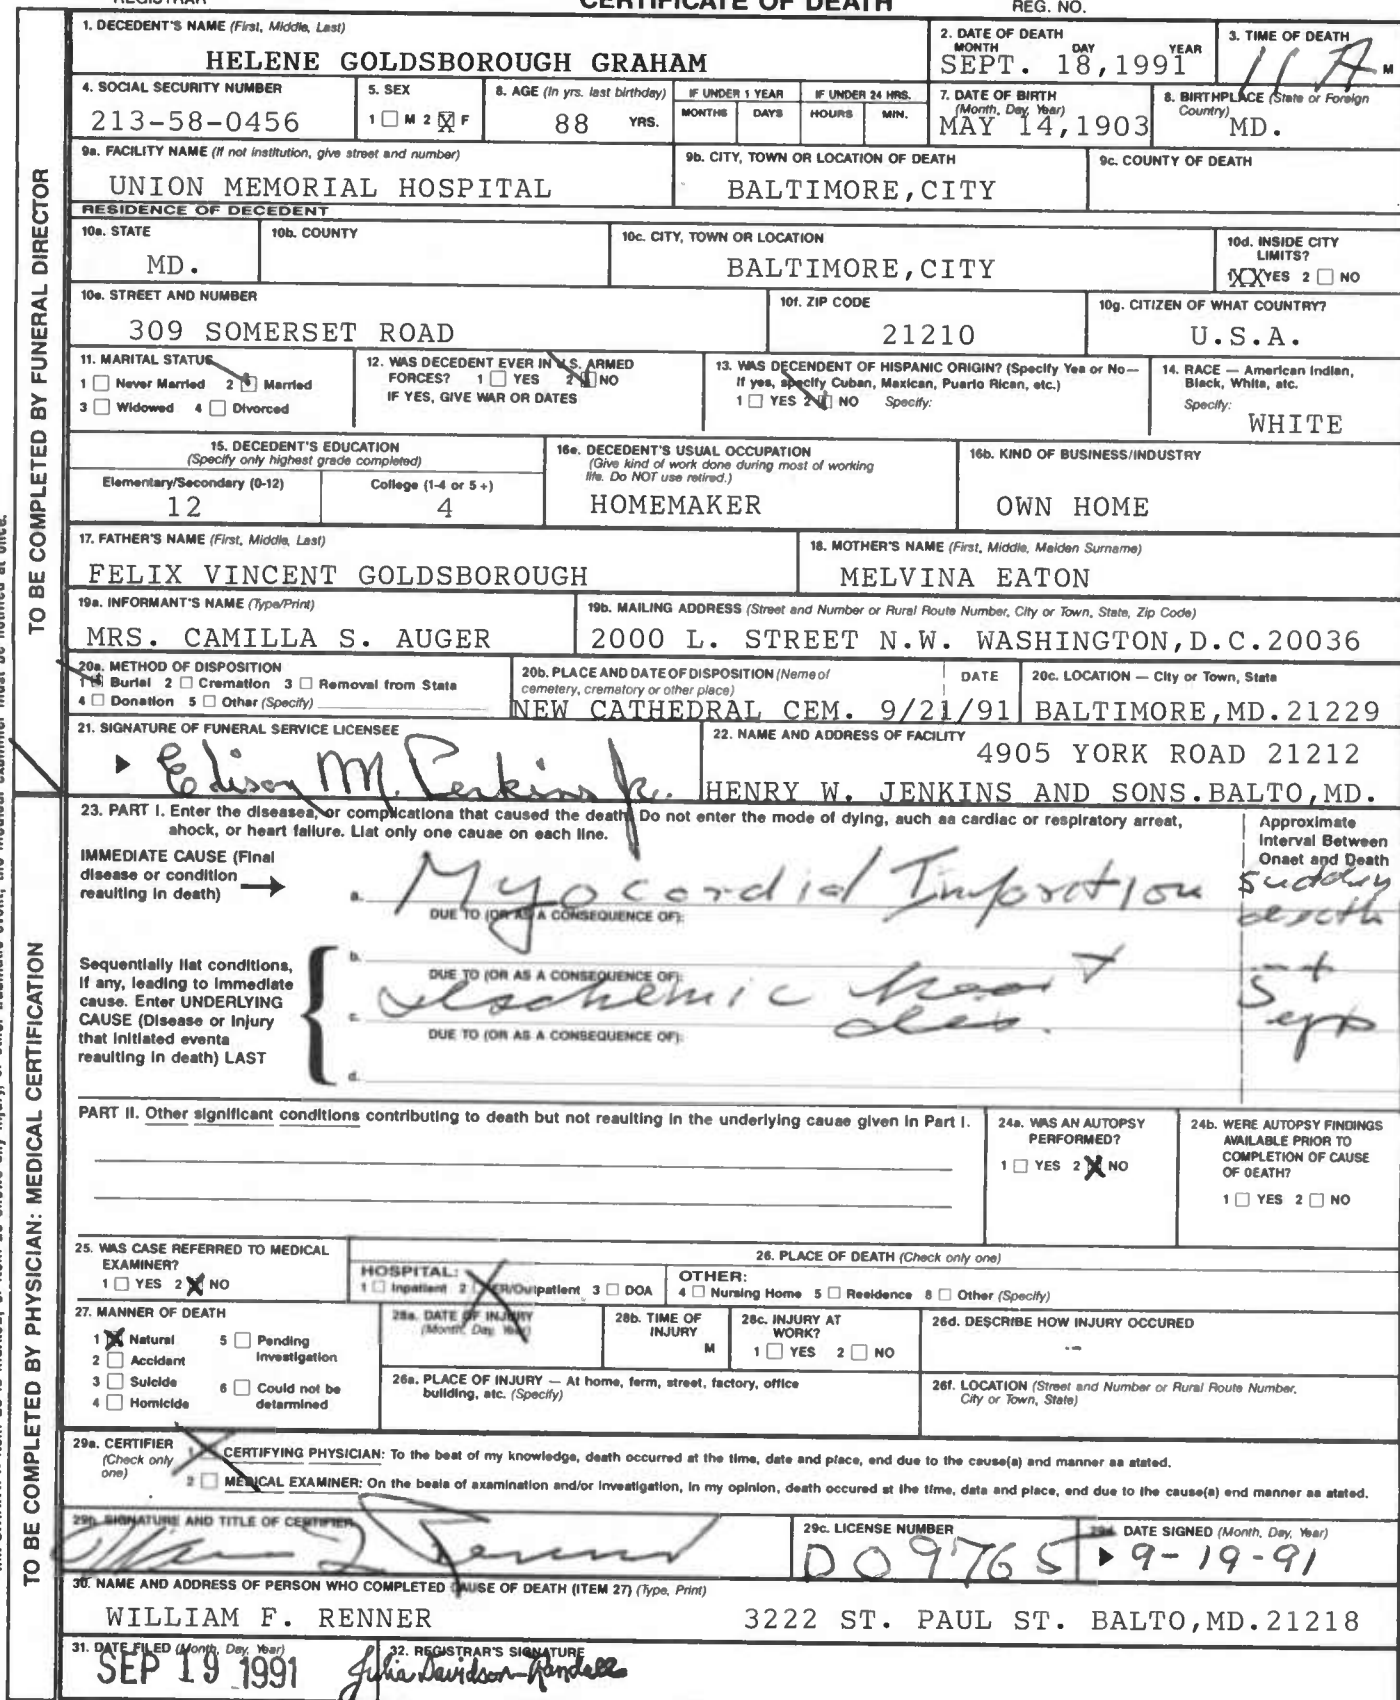 REGISTRAR CERTIFICATE OF DEATH REG. NO.
1. DECEDENT'S NAME (First, Middle, Last)
HELENE GOLDSBOROUGH GRAHAM
2. DATE OF DEATH
MONTH DAY YEAR
SEPT. 18,1991
3. TIME OF DEATH
11 A M
4. SOCIAL SECURITY NUMBER
213-58-0456
5. SEX
1 ☐ M 2 ☒ F
8. AGE (In yrs. last birthday)
88 YRS.
IF UNDER 1 YEAR
MONTHS DAYS
IF UNDER 24 HRS.
HOURS MIN.
7. DATE OF BIRTH
(Month, Day, Year)
MAY 14,1903
8. BIRTHPLACE (State or Foreign
Country)
MD.
9a. FACILITY NAME (If not institution, give street and number)
UNION MEMORIAL HOSPITAL
9b. CITY, TOWN OR LOCATION OF DEATH
BALTIMORE,CITY
9c. COUNTY OF DEATH
RESIDENCE OF DECEDENT
10a. STATE
MD.
10b. COUNTY
10c. CITY, TOWN OR LOCATION
BALTIMORE,CITY
10d. INSIDE CITY
LIMITS?
1XXYES 2 ☐ NO
10e. STREET AND NUMBER
309 SOMERSET ROAD
10f. ZIP CODE
21210
10g. CITIZEN OF WHAT COUNTRY?
U.S.A.
11. MARITAL STATUS
1 ☐ Never Married 2 ☒ Married
3 ☐ Widowed 4 ☐ Divorced
12. WAS DECEDENT EVER IN U.S. ARMED
FORCES? 1 ☐ YES 2 ☒ NO
IF YES, GIVE WAR OR DATES
13. WAS DECENDENT OF HISPANIC ORIGIN? (Specify Yes or No—
If yes, specify Cuban, Maxican, Puarto Rican, etc.)
1 ☐ YES 2 ☒ NO Specify:
14. RACE — American Indian,
Black, White, atc.
Specify:
WHITE
15. DECEDENT'S EDUCATION
(Specify only highest grade completed)
Elementary/Secondary (0-12)
12
College (1-4 or 5+)
4
16e. DECEDENT'S USUAL OCCUPATION
(Give kind of work done during most of working
life. Do NOT use retired.)
HOMEMAKER
16b. KIND OF BUSINESS/INDUSTRY
OWN HOME
17. FATHER'S NAME (First, Middle, Last)
FELIX VINCENT GOLDSBOROUGH
18. MOTHER'S NAME (First, Middle, Maiden Surname)
MELVINA EATON
19a. INFORMANT'S NAME (Type/Print)
MRS. CAMILLA S. AUGER
19b. MAILING ADDRESS (Street and Number or Rural Route Number, City or Town, State, Zip Code)
2000 L. STREET N.W. WASHINGTON,D.C.20036
20a. METHOD OF DISPOSITION
1 ☒ Burial 2 ☐ Cremation 3 ☐ Removal from State
4 ☐ Donation 5 ☐ Other (Specify)
20b. PLACE AND DATE OF DISPOSITION (Name of
cemetery, crematory or other place)
DATE
NEW CATHEDRAL CEM. 9/21/91
20c. LOCATION — City or Town, State
BALTIMORE,MD.21229
21. SIGNATURE OF FUNERAL SERVICE LICENSEE
Edison M. Perkins Jr.
22. NAME AND ADDRESS OF FACILITY
4905 YORK ROAD 21212
HENRY W. JENKINS AND SONS.BALTO,MD.
TO BE COMPLETED BY FUNERAL DIRECTOR
23. PART I. Enter the diseases, or complications that caused the death. Do not enter the mode of dying, auch aa cardiac or respiratory arreat,
ahock, or heart failure. Liat only one cause on each line.
Approximate
Interval Between
Onset and Death
IMMEDIATE CAUSE (Final
disease or condition
reaulting in death)
a. Myocordial Inforction
sudden
death
DUE TO (OR AS A CONSEQUENCE OF):
Sequentially liat conditions,
if any, leading to immediate
cause. Enter UNDERLYING
CAUSE (Disease or injury
that initiated eventa
reaulting in death) LAST
b.
DUE TO (OR AS A CONSEQUENCE OF):
c. Ischemic heart
des.
5+
yrs
DUE TO (OR AS A CONSEQUENCE OF):
d.
PART II. Other significant conditions contributing to death but not resulting in the underlying cauae given in Part I.
24a. WAS AN AUTOPSY
PERFORMED?
1 ☐ YES 2 ☒ NO
24b. WERE AUTOPSY FINDINGS
AVAILABLE PRIOR TO
COMPLETION OF CAUSE
OF DEATH?
1 ☐ YES 2 ☐ NO
25. WAS CASE REFERRED TO MEDICAL
EXAMINER?
1 ☐ YES 2 ☒ NO
26. PLACE OF DEATH (Check only one)
HOSPITAL:
1 ☐ Inpatient 2 ☒ ER/Outpatient 3 ☐ DOA
OTHER:
4 ☐ Nursing Home 5 ☐ Residence 8 ☐ Other (Specify)
27. MANNER OF DEATH
1 ☒ Natural 5 ☐ Pending
Investigation
2 ☐ Accident
3 ☐ Suicide 6 ☐ Could not be
determined
4 ☐ Homicide
28a. DATE OF INJURY
(Month, Day, Year)
28b. TIME OF
INJURY
M
28c. INJURY AT
WORK?
1 ☐ YES 2 ☐ NO
26d. DESCRIBE HOW INJURY OCCURED
26a. PLACE OF INJURY — At home, ferm, street, factory, office
building, atc. (Specify)
26f. LOCATION (Street and Number or Rural Route Number,
City or Town, State)
29a. CERTIFIER
(Check only
one)
CERTIFYING PHYSICIAN: To the beat of my knowledge, death occurred at the time, date and place, end due to the cause(a) and manner aa atated.
2 ☐ MEDICAL EXAMINER: On the beala of examination and/or investigation, in my opinion, death occured at the time, data and place, end due to the cause(a) end manner aa atated.
29b. SIGNATURE AND TITLE OF CERTIFIER
29c. LICENSE NUMBER
D09765
29d. DATE SIGNED (Month, Day, Year)
9-19-91
30. NAME AND ADDRESS OF PERSON WHO COMPLETED CAUSE OF DEATH (ITEM 27) (Type, Print)
WILLIAM F. RENNER 3222 ST. PAUL ST. BALTO,MD.21218
31. DATE FILED (Month, Day, Year)
SEP 19 1991
32. REGISTRAR'S SIGNATURE
Julia Davidson-Randall
TO BE COMPLETED BY PHYSICIAN: MEDICAL CERTIFICATION